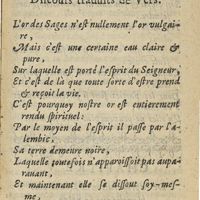 Discours traduits de Vers.
L'or des Sages n'est nullement l'or vulgai-
re,
Mais c'est une certaine eau claire &
pure,
Sur laquelle est porté l'esprit du Seigneur,
Et c'est de là que toute sorte d'estre prend
& reçoit la vie.
C'est pourquoy nostre or est entierement
rendu spirituel:
Par le moyen de l'esprit il passe par l'a-
lembic,
Sa terre demeure noire,
Laquelle toutesfois n'apparoissoit pas aupa-
ravant,
Et maintenant elle se dissout soy-mes-
me,